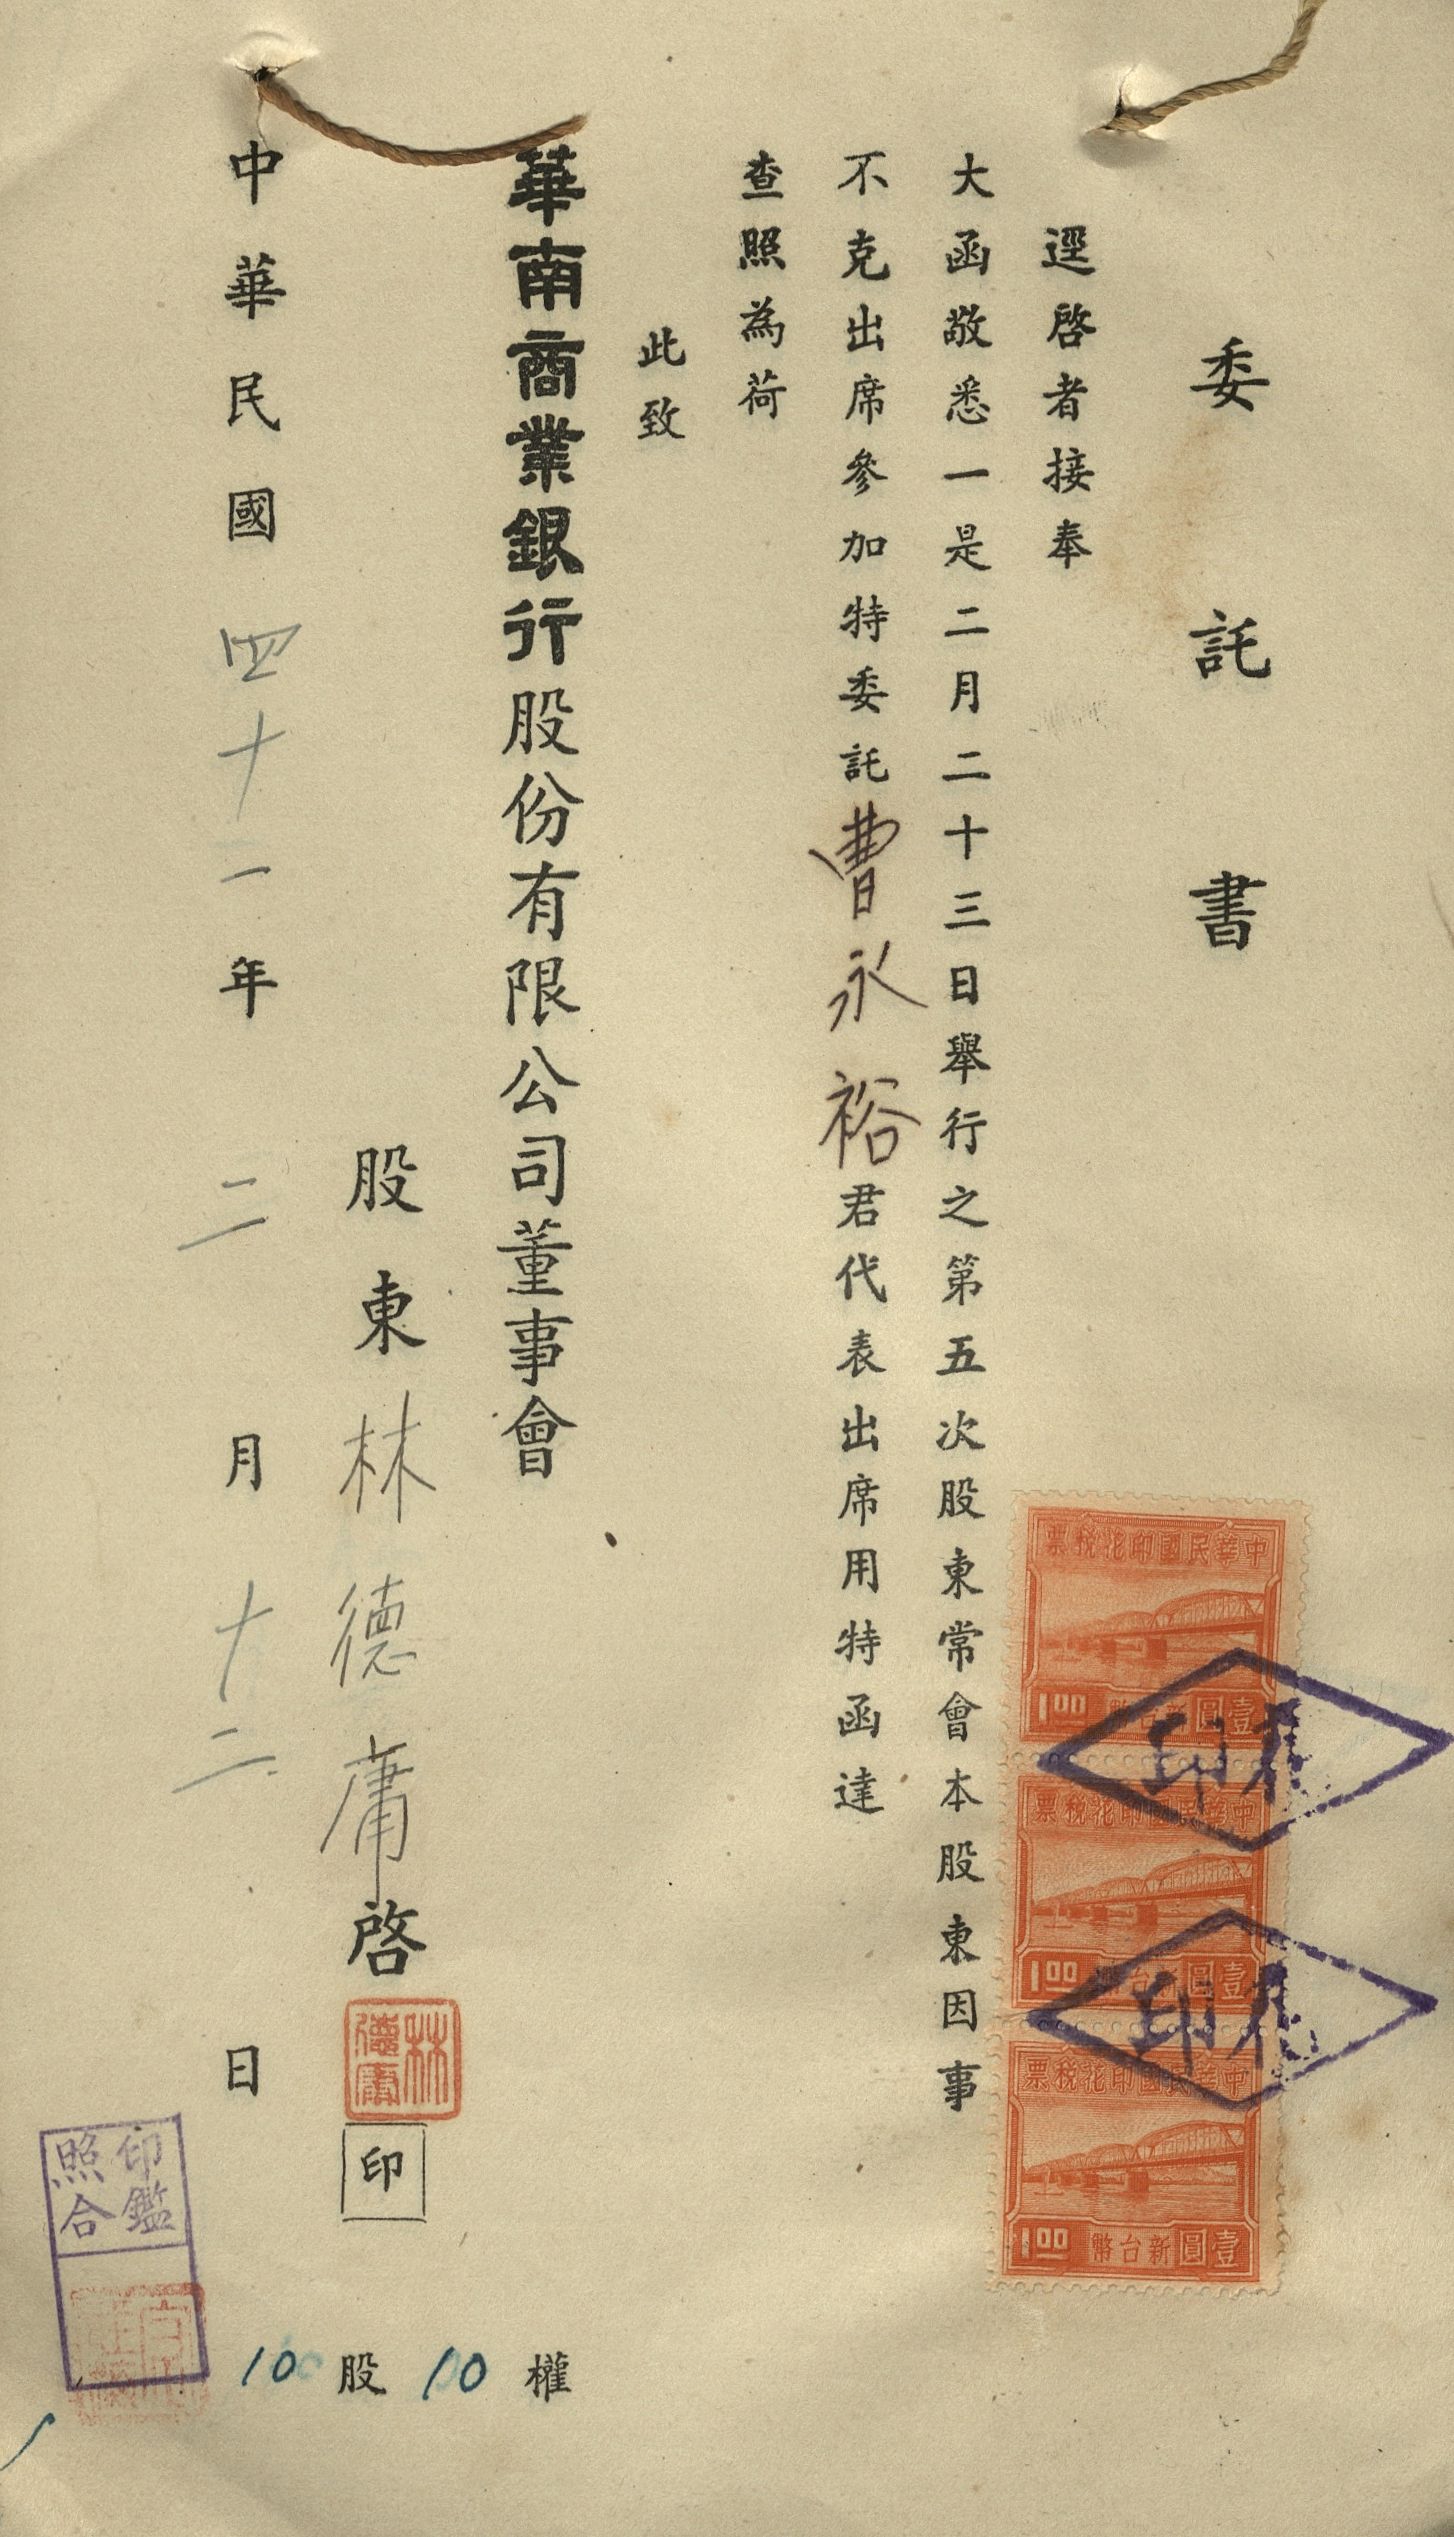 委託書
逕啓者接奉
大函敬悉一是二月二十三日舉行之第五次股東常會本股東因事
不克出席參加特委託曹永裕君代表出席用特函達
查照為荷
此致
華南商業銀行股份有限公司董事會
股東林德庸啓
林德庸
印
中華民國四十一年二月十二日
10股10權
印鑑
照合
中華民國印花稅票
1.00 新台幣壹圓
中華民國印花稅票
1.00 新台幣壹圓
中華民國印花稅票
1.00 新台幣壹圓